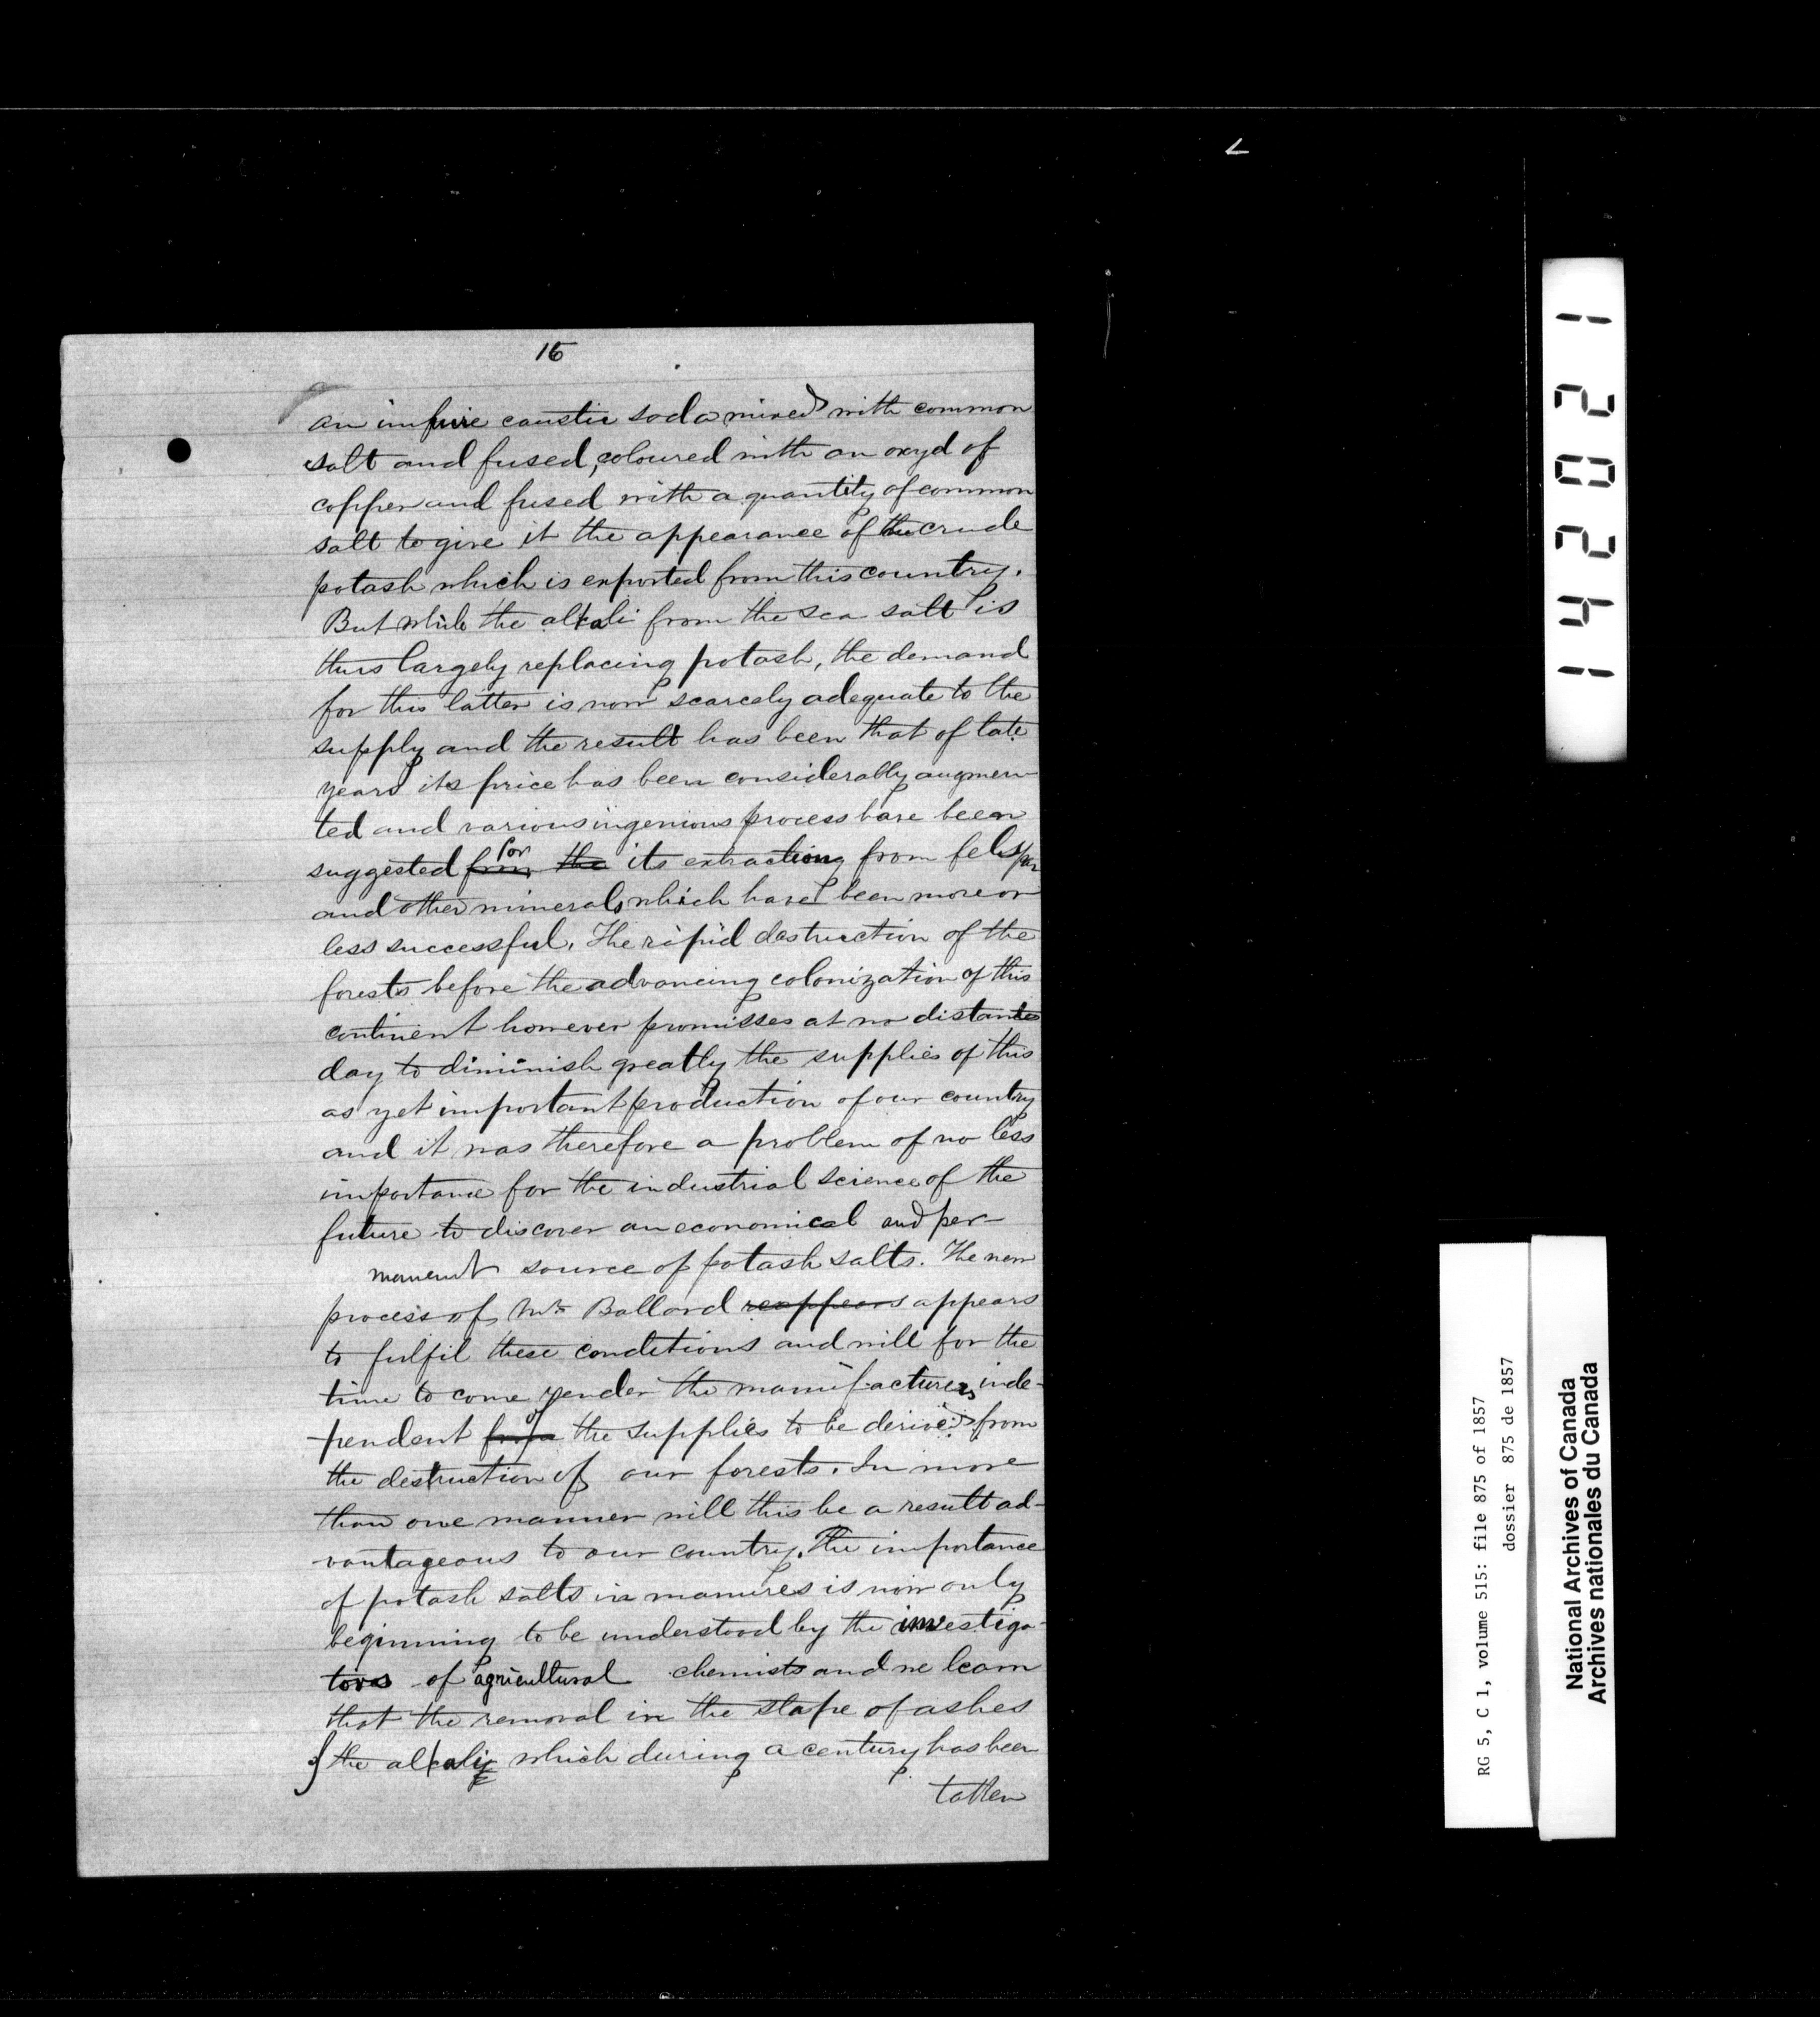 16
an impure caustic soda mixed with common
salt and fused, coloured with an oxyd of
copper and fused with a quantity of common
salt to give it the appearance of the crude
potash which is exported from this country.
But while the alkali from the sea salt is
thus largely replacing potash, the demand
for this latter is now scarcely adequate to the
supply and the result has been that of late
years its price has been considerably augmen-
ted and various ingenious process have been
suggested from the for its extraction from felspar
and other minerals which have been more or
less successful. The rapid destruction of the
forests before the advancing colonization of this
continent however promisses at no distant
day to diminish greatly the supplies of this
as yet important production of our country
and it was therefore a problem of no less
importance for the industrial science of the
future to discover an economical and per-
manent source of potash salts. The new
process of Mr Ballard reappears appears
to fulfil these conditions and will for the
time to come render the manufacturers inde-
pendent from of the supplies to be derived from
the destruction of our forests. In more
than one manner will this be a result ad-
vantageous to our country. The importance
of potash salts in manures is now only
beginning to be understood by the investiga-
tors of agricultural chemists and we learn
that the removal in the shape of ashes
of the alkali which during a century has been
taken
14202 1
RG 5, C 1, volume 515: file 875 of 1857
dossier 875 de 1857
National Archives of Canada
Archives nationales du Canada